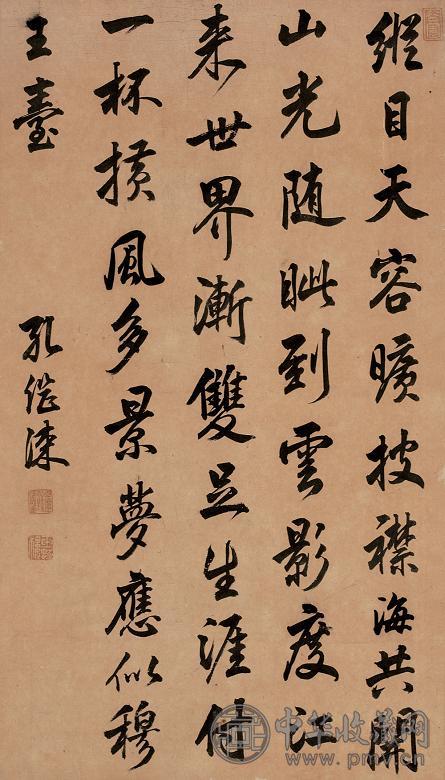 縱目天容曠披襟海共開
山光随眦到雲影度江
来世界漸雙足生涯付
一杯横風多景夢應似穆
王臺
孔继涑
中华收藏网
www.pmv.cn